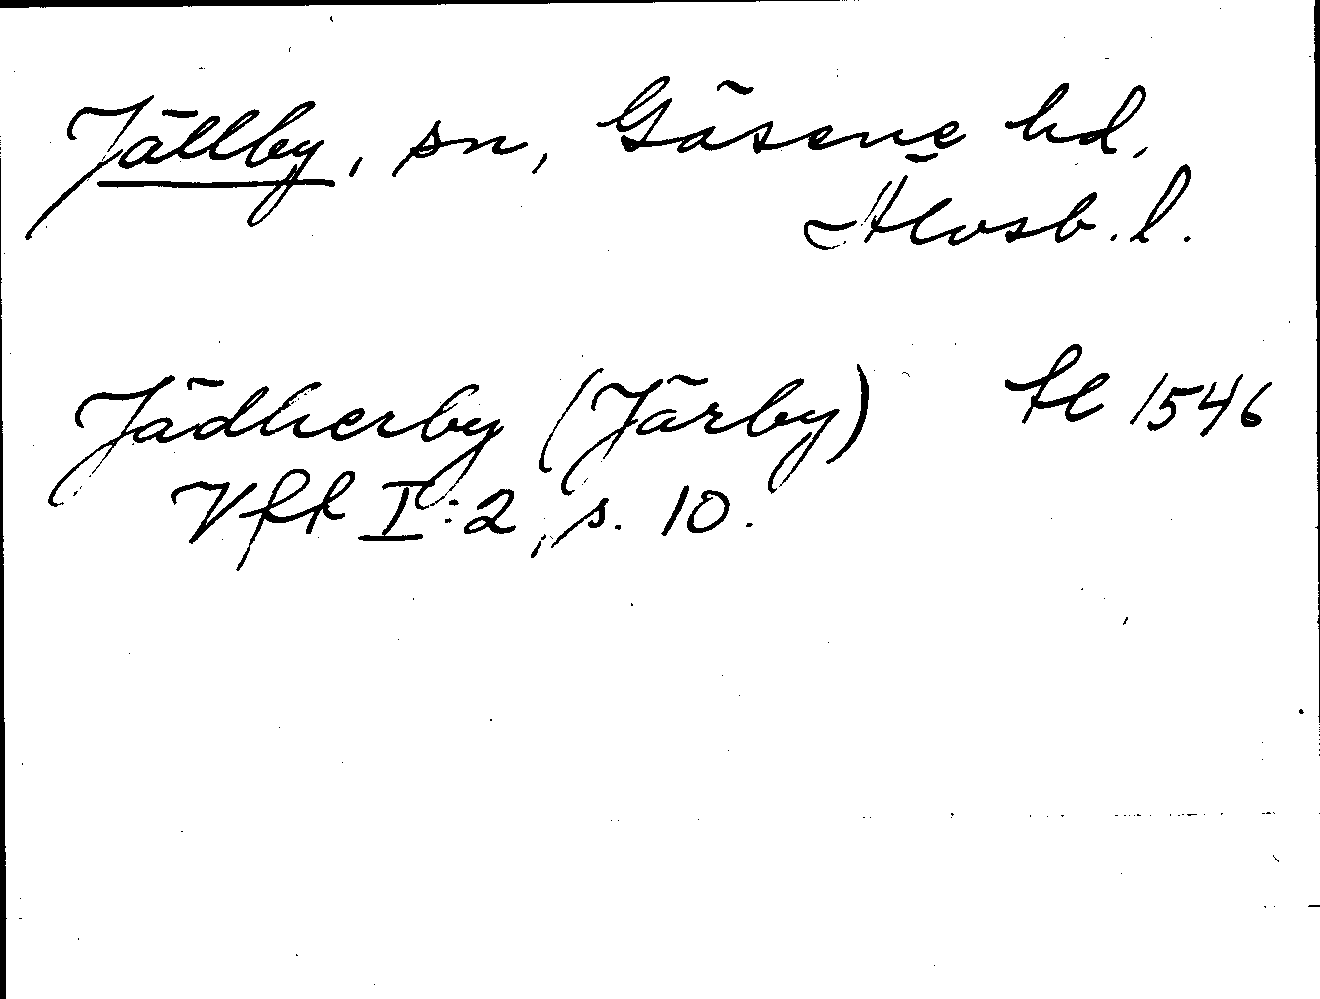 Jällby, sn, Gäsene hd,
Älvsb. l.
Jädherby (Järby) fl 1546
Vfft I:2, s. 10.